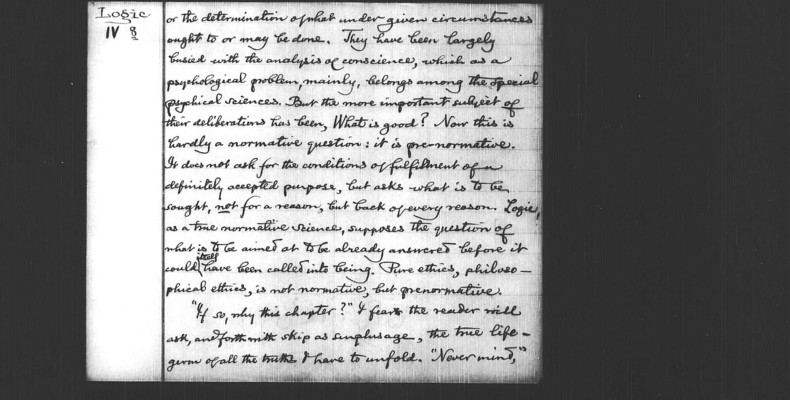 Logic
IV 8
or the determination of what under given circumstances
ought to or may be done. They have been largely
busied with the analysis of conscience, which as a
psychological problem, mainly, belongs among the special
psychical sciences. But the more important subject of
their deliberations has been, What is good? Now this is
hardly a normative question: it is pre-normative.
It does not ask for the conditions of fulfilment of a
definitely accepted purpose, but asks what is to be
sought, not for a reason, but back of every reason. Logic,
as a true normative science, supposes the question of
what is to be aimed at to be already answered before it
could itself have been called into being. Pure ethics, philoso-
phical ethics, is not normative, but prenormative.
"If so, why this chapter?" I fear the reader will
ask, and forthwith skip as surplusage, the true life-
germ of all the truths I have to unfold. "Never mind,"